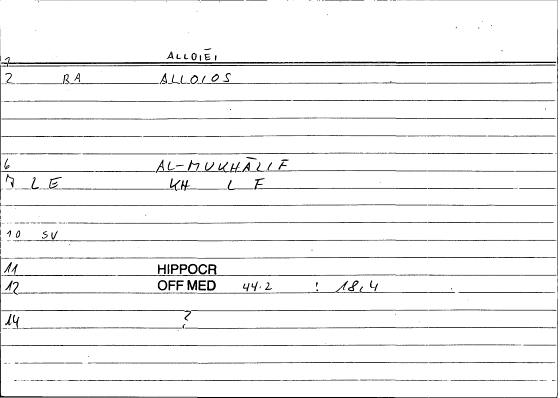 1 ALLOIĒI
2 RA ALLOIOS
6 AL-MUKHĀLIF
7 L E KH L F
10 SV
11 HIPPOCR
12 OFF MED 44.2 : 18,4
14 ?